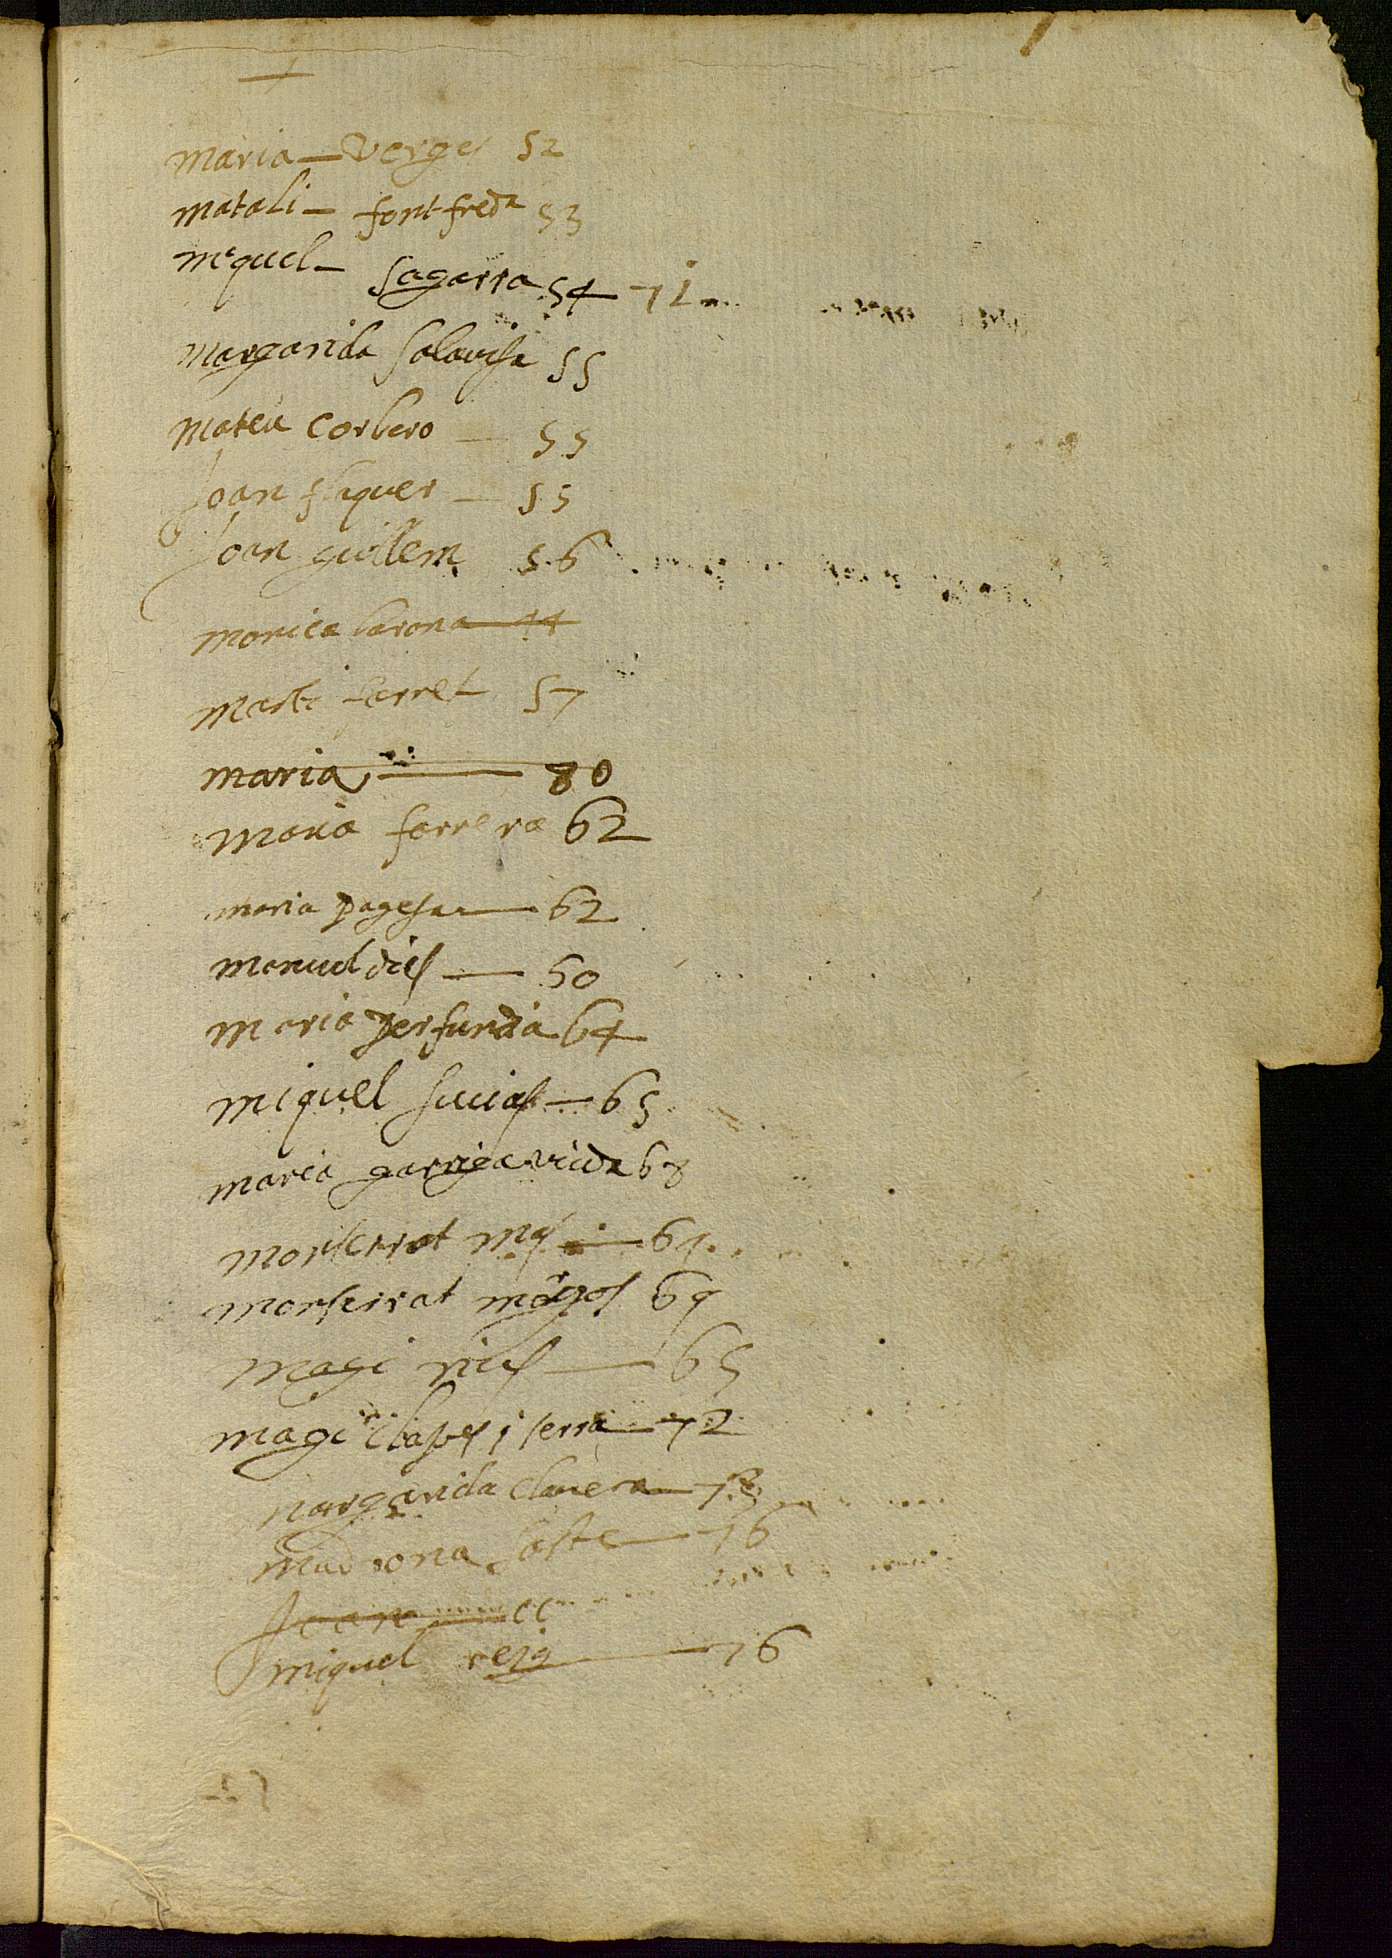 maria - verges 52
matali - fontfreda 53
miquel - sagarra 54 - 71
margarida salavisa 55
mateu corbero - 55
Joan flaquer - 55
Joan guillem 56
monica barona 44
marti ferret 57
maria - 80
maria ferrera 62
maria pagesa - 62
manuel dies - 50
maria perfunda 64
miquel - 65
maria garriga viuda 68
monserrat mas - 64
monserrat 69
magi rius - 65
magi clapes i serra - 72
margarida clauera - 73
madrona - 76
Joan
miquel reig - 76